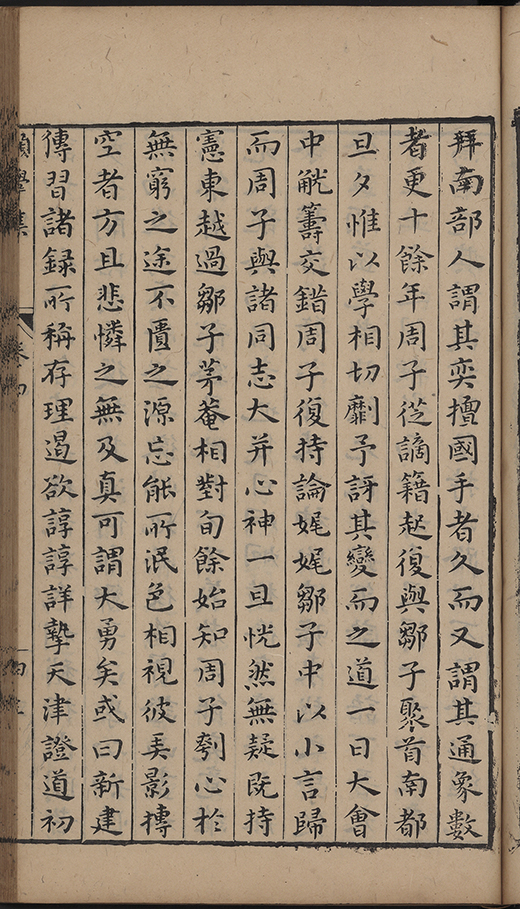 拜南部人謂其奕擅國手者久而又謂其通象數
者更十餘年周子從謫籍起復與鄒子聚首南都
旦夕惟以學相切劘予訝其變而之道一日大會
中觥籌交錯周子復持論娓娓鄒子中以小言歸
而周子與諸同志大并心神一旦恍然無疑既持
憲東越過鄒子茅菴相對旬餘始知周子刳心於
無窮之途不匱之源忘能所泯色相視彼美影摶
空者方且悲憐之無及真可謂大勇矣或曰新建
傳習諸録所稱存理遏欲諄諄詳摯天津證道初
願學集 卷四